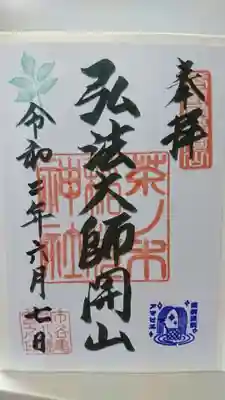 奉拝
弘法大師開山
茶ノ木
稲荷
神社
令和二年六月七日